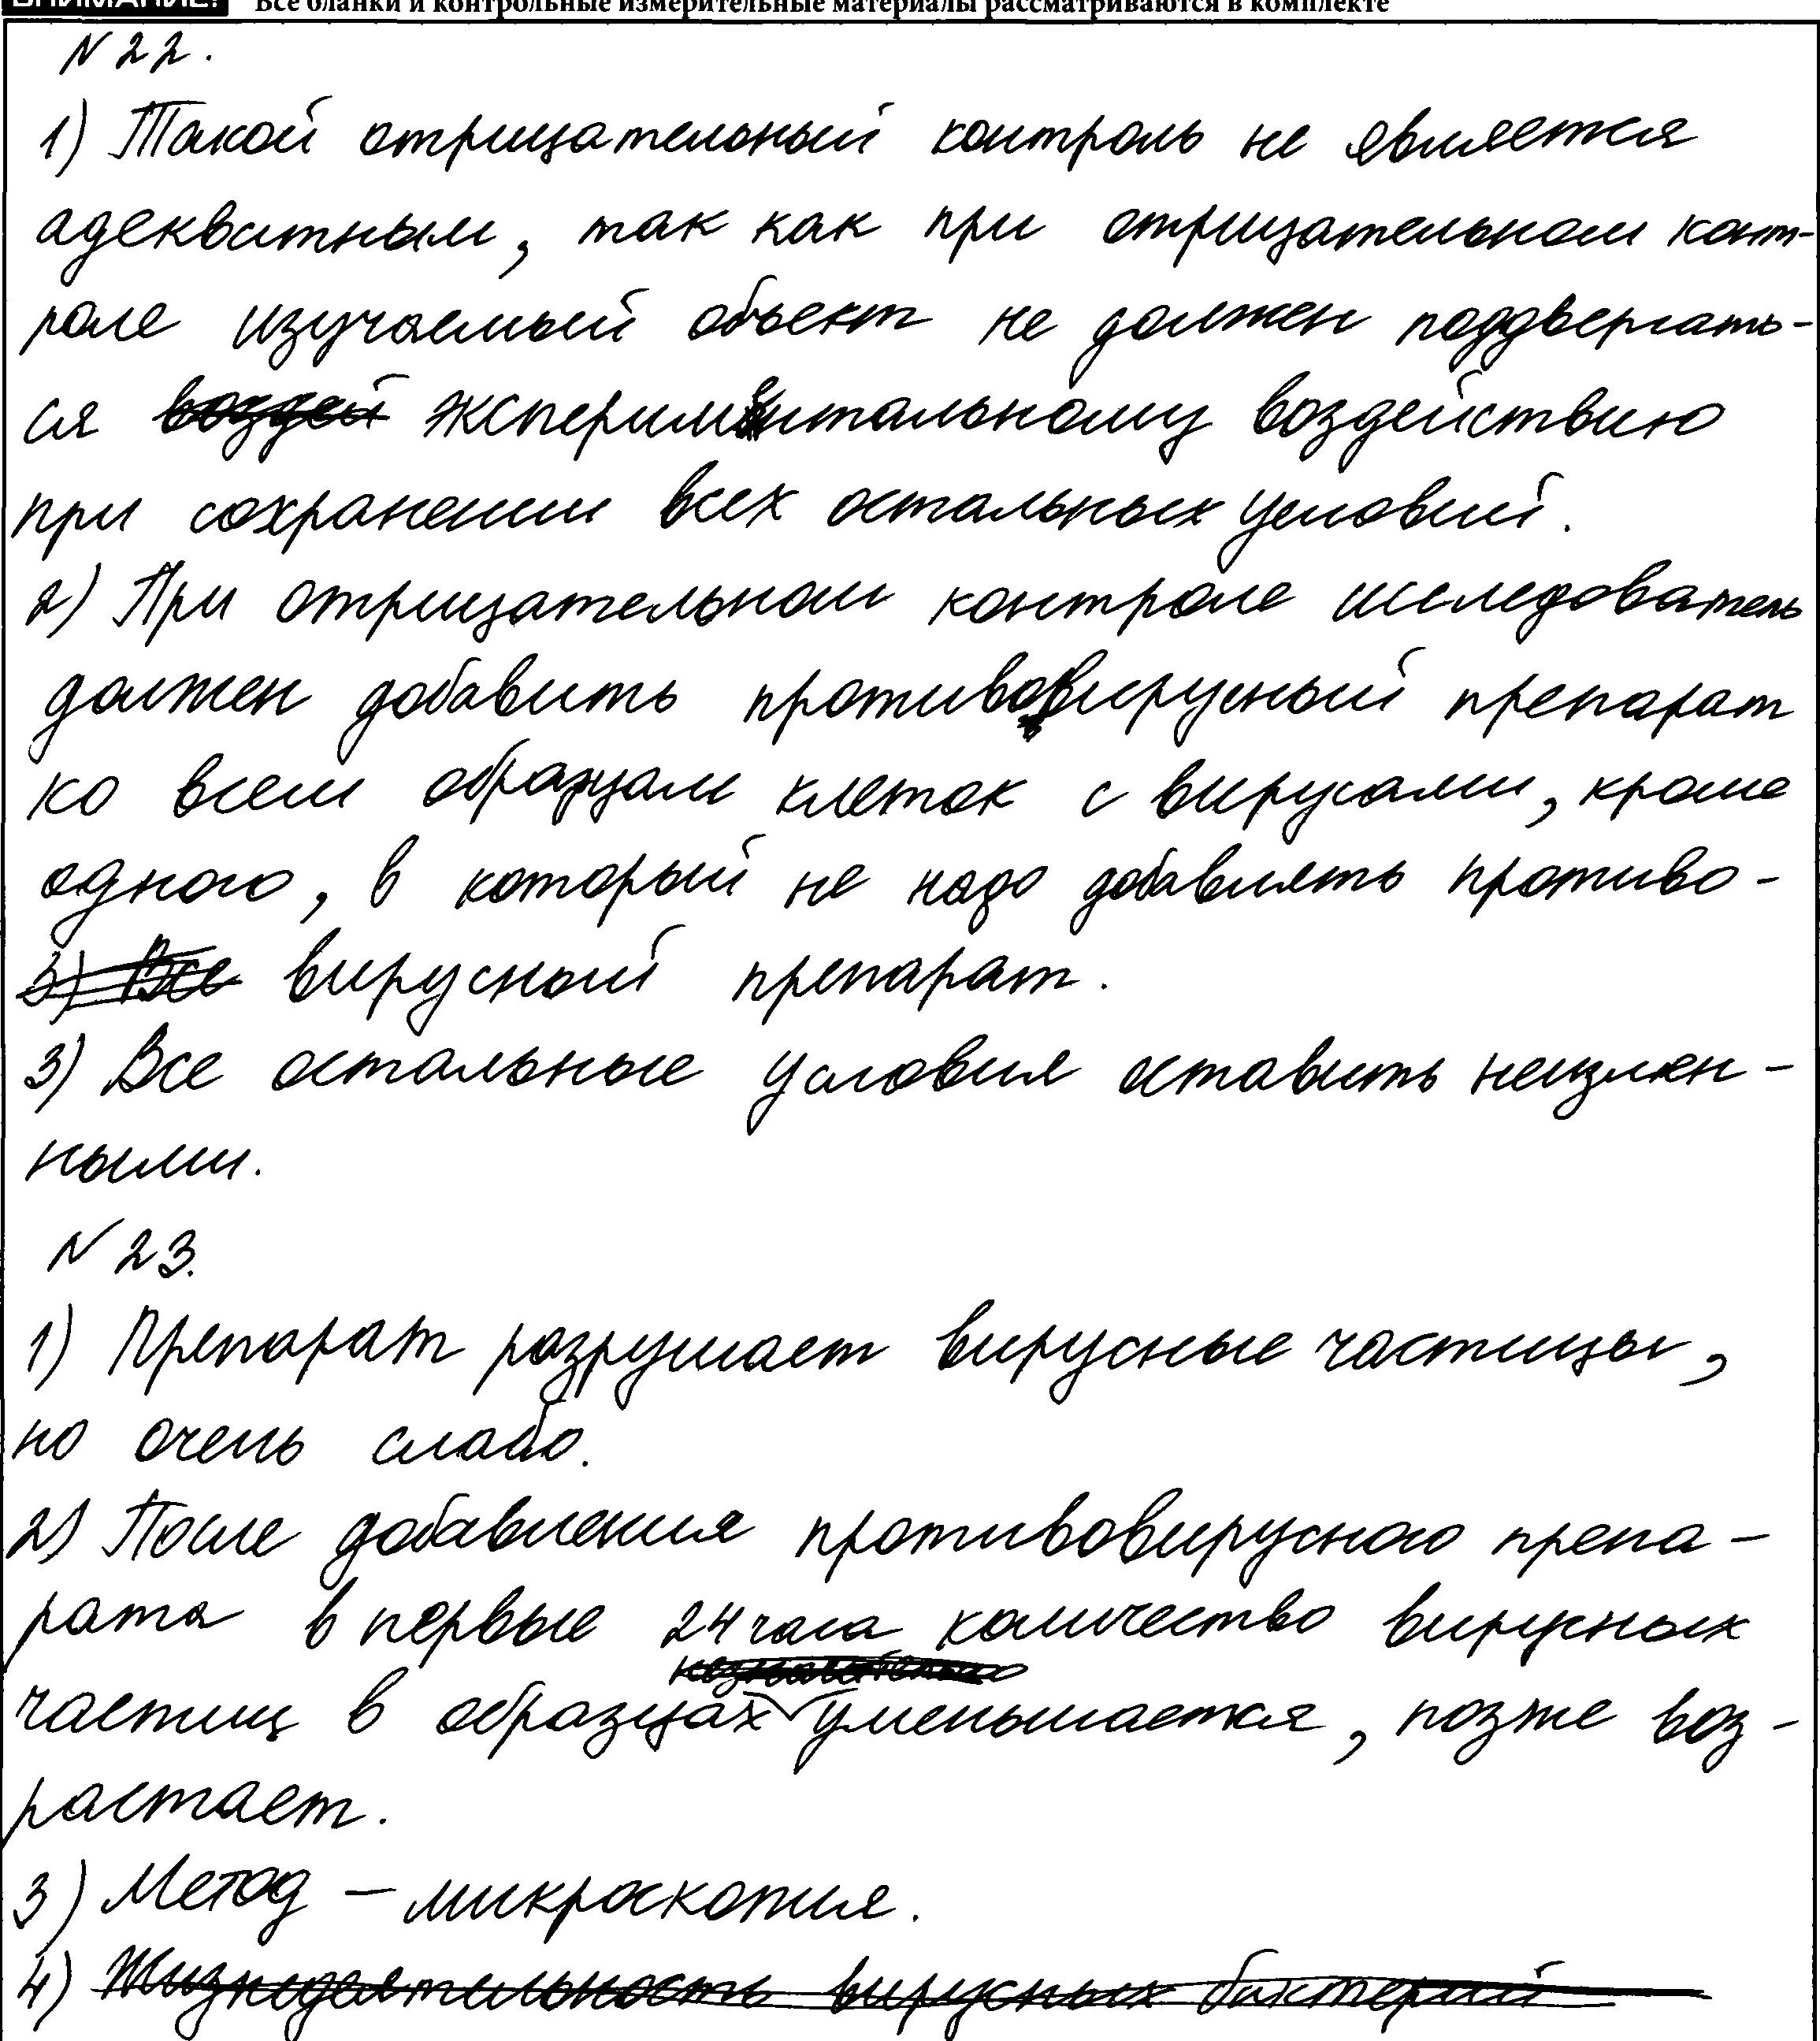 ВНИМАНИЕ! Все бланки и контрольные измерительные материалы рассматриваются в комплекте
N 22.
1) Такой отрицательный контроль не является
адекватным, так как при отрицательном конт-
роле изучаемый объект не должен поддвергать-
ся воздей экспериментальному воздействию
при сохранении всех остальных условий.
2) При отрицательном контроле исследователь
должен добавить противовирусный препарат
ко всем образцам клеток с вирусами, кроме
одного, в который не надо добавлять противо-
3) Все вирусный препарат.
3) Все остальные условия оставить неизмен-
ными.
N 23.
1) Препарат разрушает вирусные частицы,
но очень слабо.
2) После добавления противовирусного препа-
рата в первые 24 часа количество вирусных
незначительно
частиц в образцах уменьшается, позже воз-
растает.
3) Метод – микроскопия.
4) Жизнедеятельность вирусных бактерий